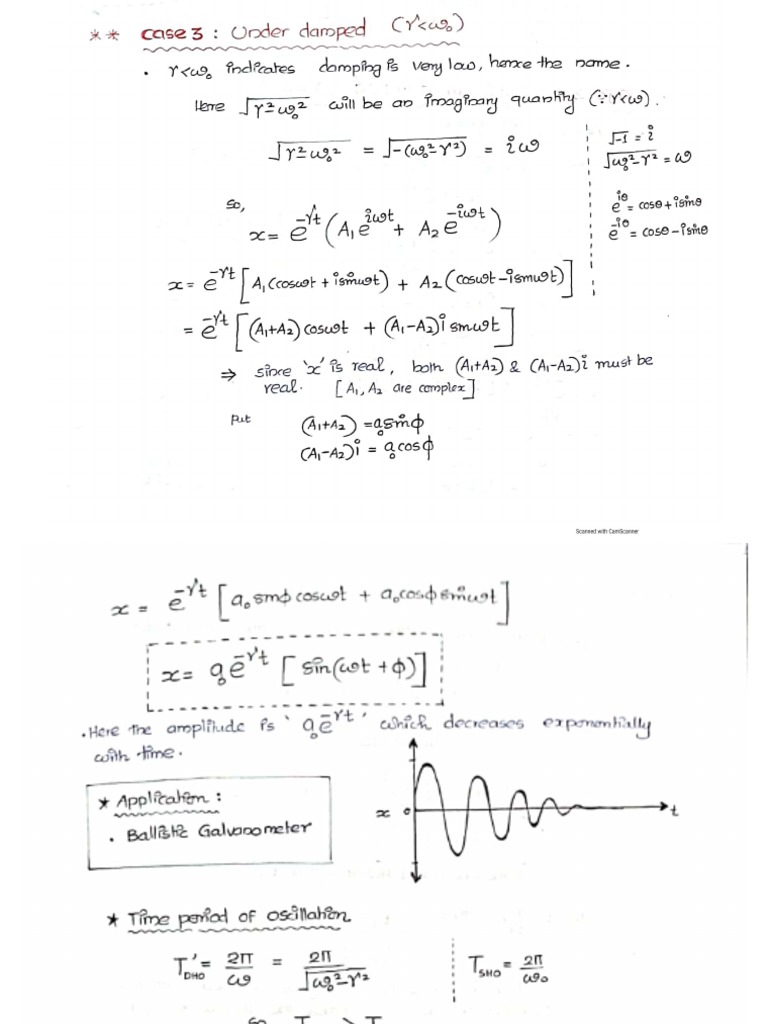 ** Case 3 : Under damped (r<ω₀)
• r<ω₀ indicates damping is very low, hence the name.
Here √r²-ω₀² will be an imaginary quantity (∵ r<ω).
√r²-ω₀² = √-(ω₀²-r²) = iω
√-1 = i
√ω₀²-r² = ω
e^iθ = cosθ+isinθ
e^-iθ = cosθ-isinθ
so,
x = e^-rt (A₁e^iωt + A₂e^-iωt)
x = e^-rt [A₁(cosωt + isinωt) + A₂(cosωt-isinωt)]
= e^-rt [(A₁+A₂)cosωt + (A₁-A₂)i sinωt]
⇒ since 'x' is real, both (A₁+A₂) & (A₁-A₂)i must be
real. [A₁, A₂ are complex]
Put (A₁+A₂) = a₀sinφ
(A₁-A₂)i = a₀cosφ
Scanned with CamScanner
x = e^-rt [a₀sinφcosωt + a₀cosφsinωt]
x = a₀e^-rt [sin(ωt+φ)]
• Here the amplitude is 'a₀e^-rt' which decreases exponentially
with time.
* Application :
• Ballistic Galvanometer
x o t
* Time period of oscillation
T'DHO = 2π/ω = 2π/√ω₀²-r²
TSHO = 2π/ω₀